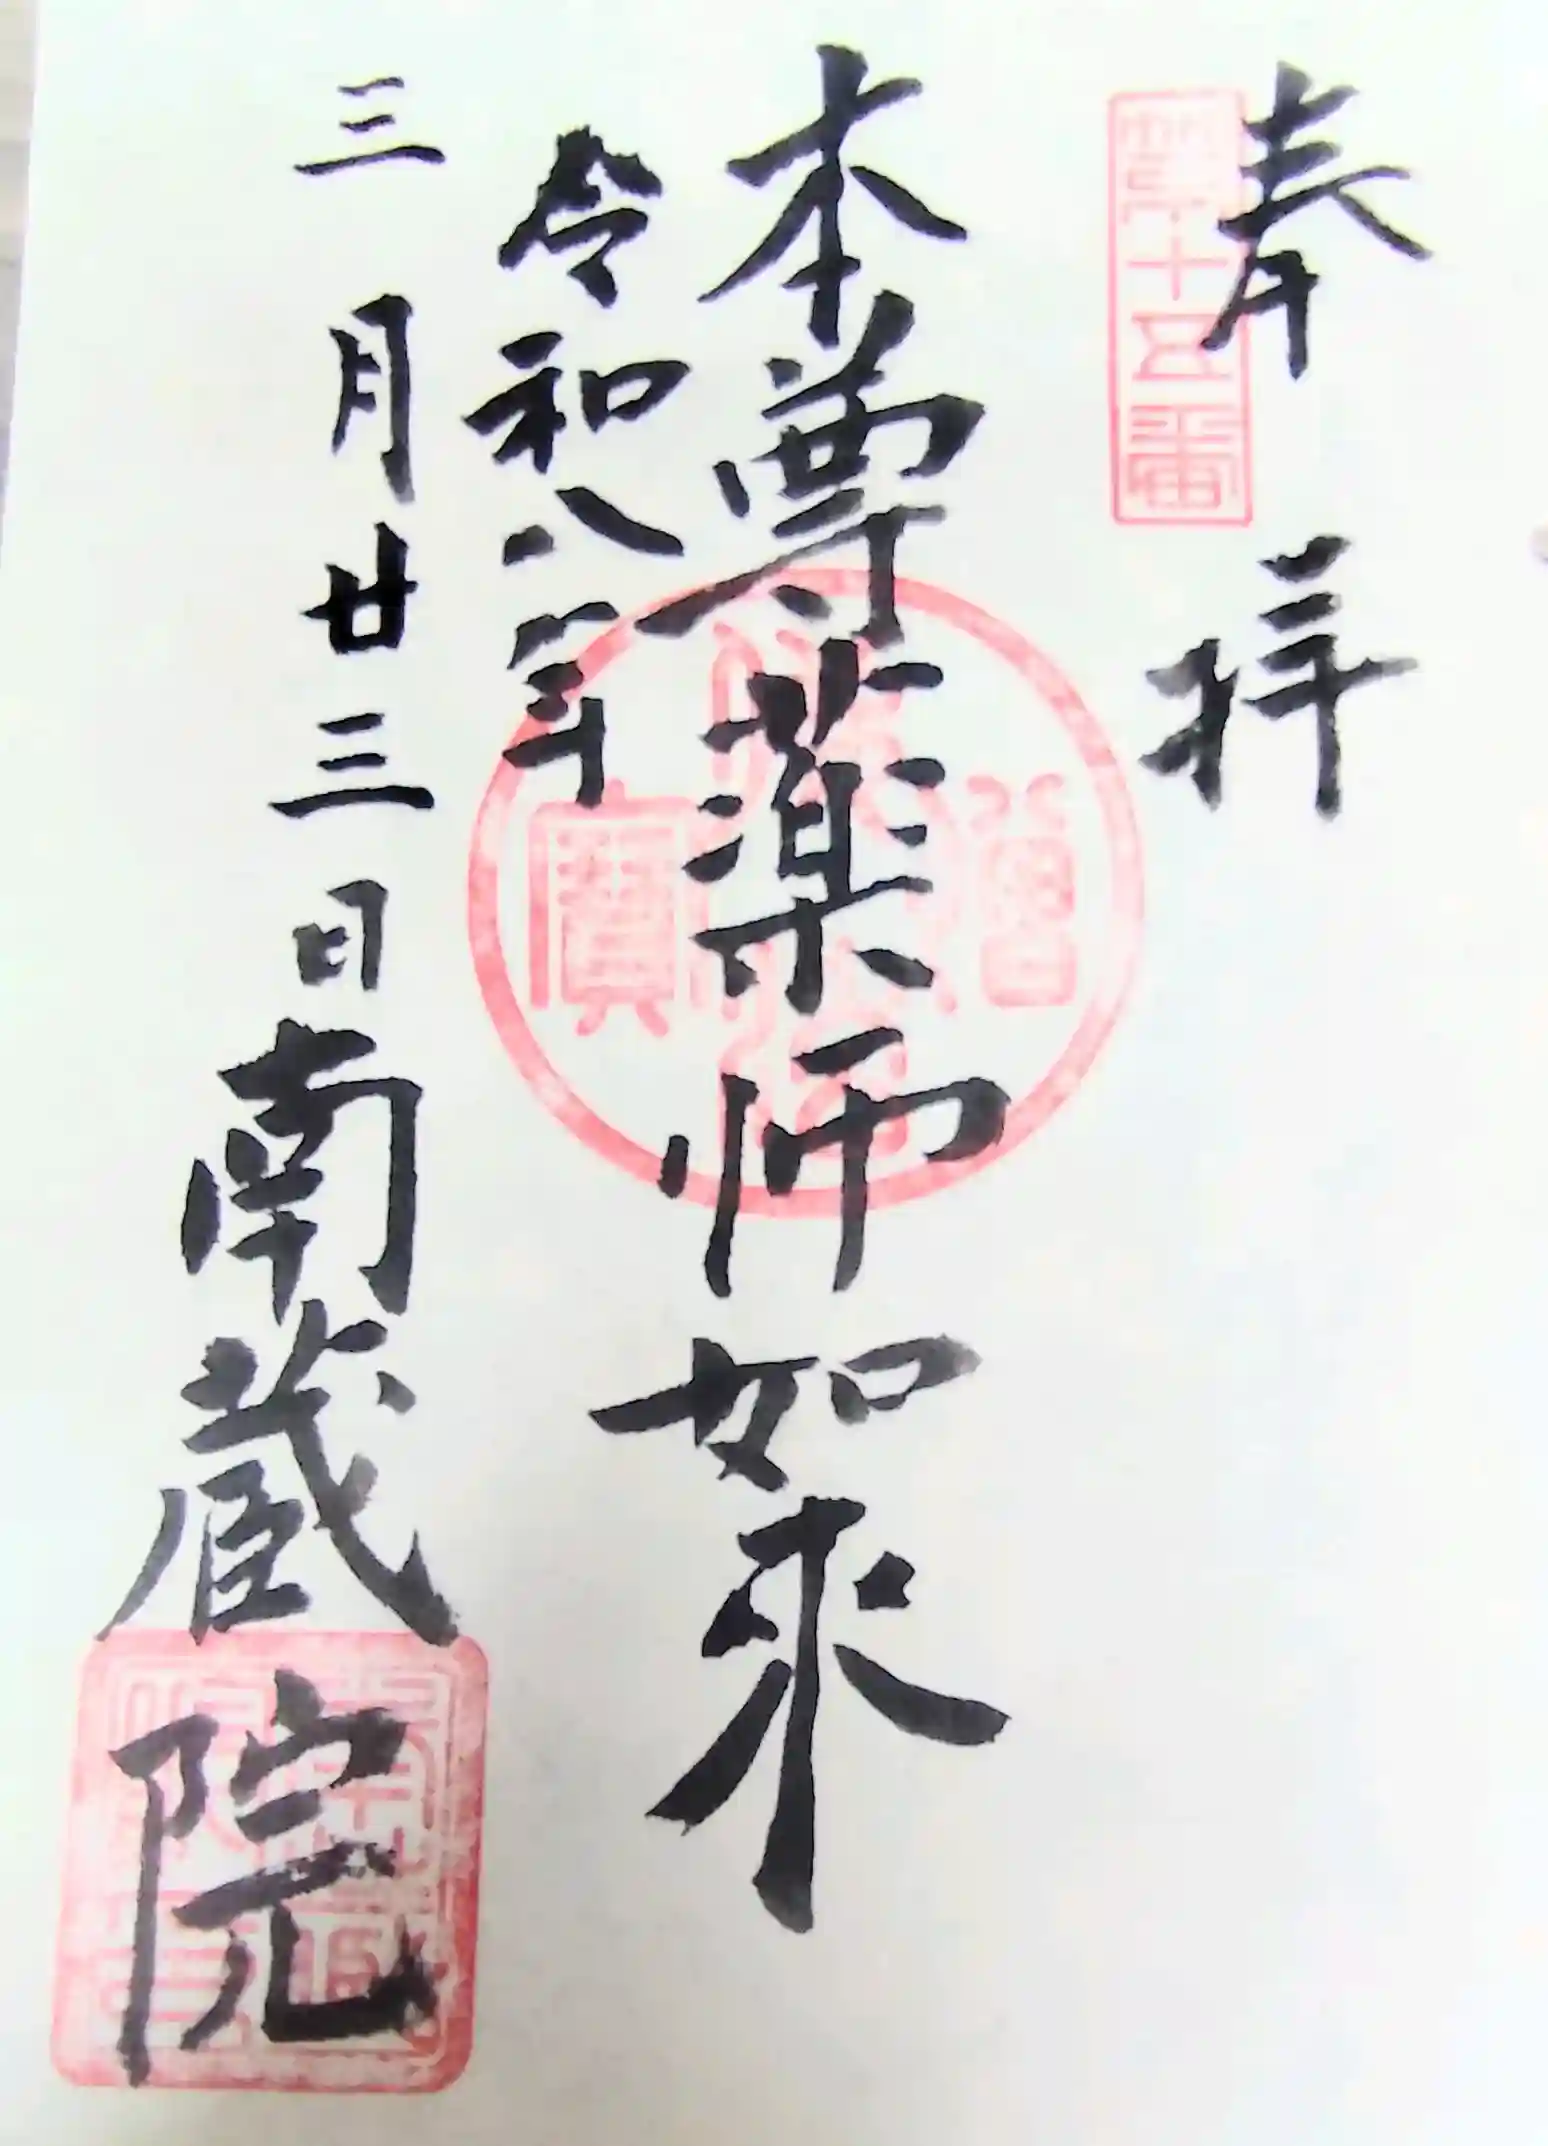 奉拝
第十五番
本尊薬師如来
令和八年
三月廿三日
南蔵院